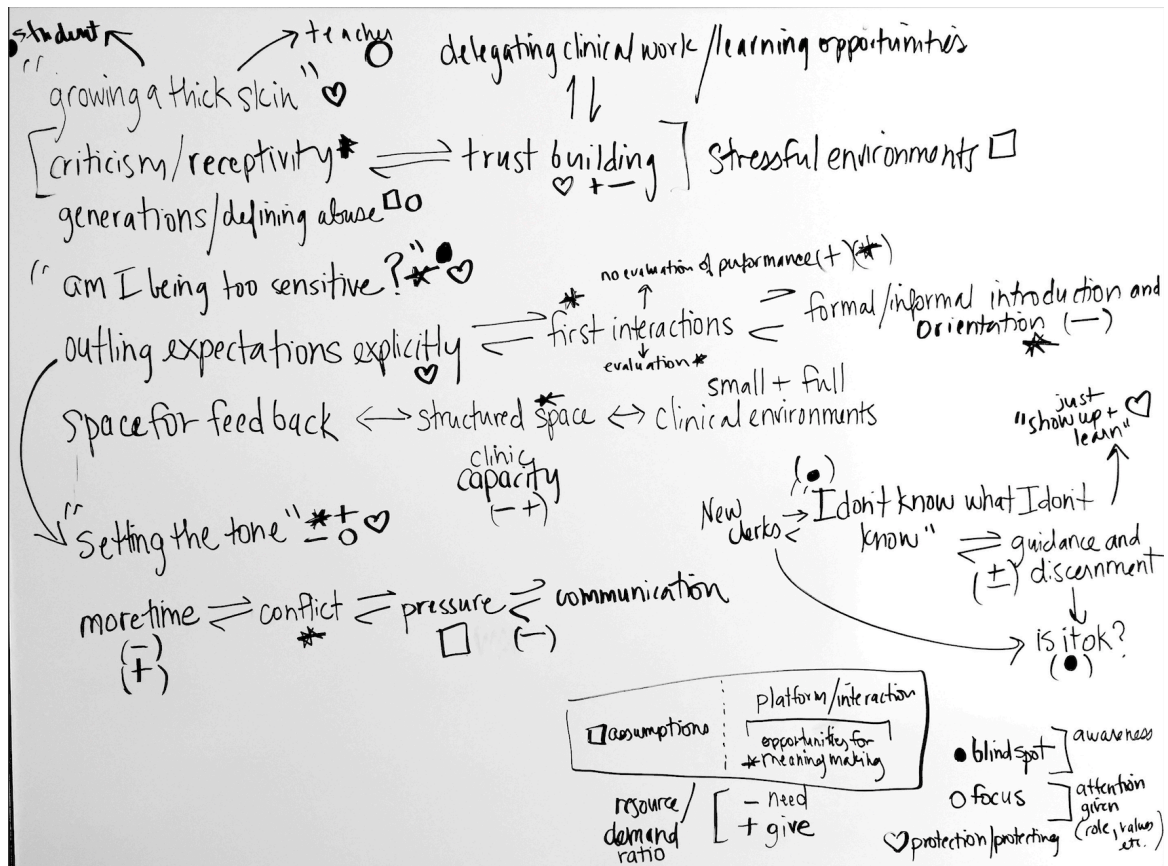 student
teacher
delegating clinical work/learning opportunities
"growing a thick skin"
criticism/receptivity
trust building
+ -
stressful environments
generations/defining abuse
"am I being too sensitive?"
no evaluation of performance (+)
outling expectations explicitly
first interactions
evaluation
formal/informal introduction and
orientation (-)
small + full
space for feedback
structured space
clinical environments
clinic
capacity
(- +)
just
"show up +
learn"
"setting the tone"
+
-
New
clerks
"I don't know what I don't
know"
guidance and
(±) discernment
is it ok?
more time
(-)
(+)
conflict
pressure
communication
(-)
assumptions
platform/interaction
opportunities for
meaning making
resource/
demand
ratio
- need
+ give
blind spot
awareness
focus
attention
given
(role, values
etc.)
protection/protecting